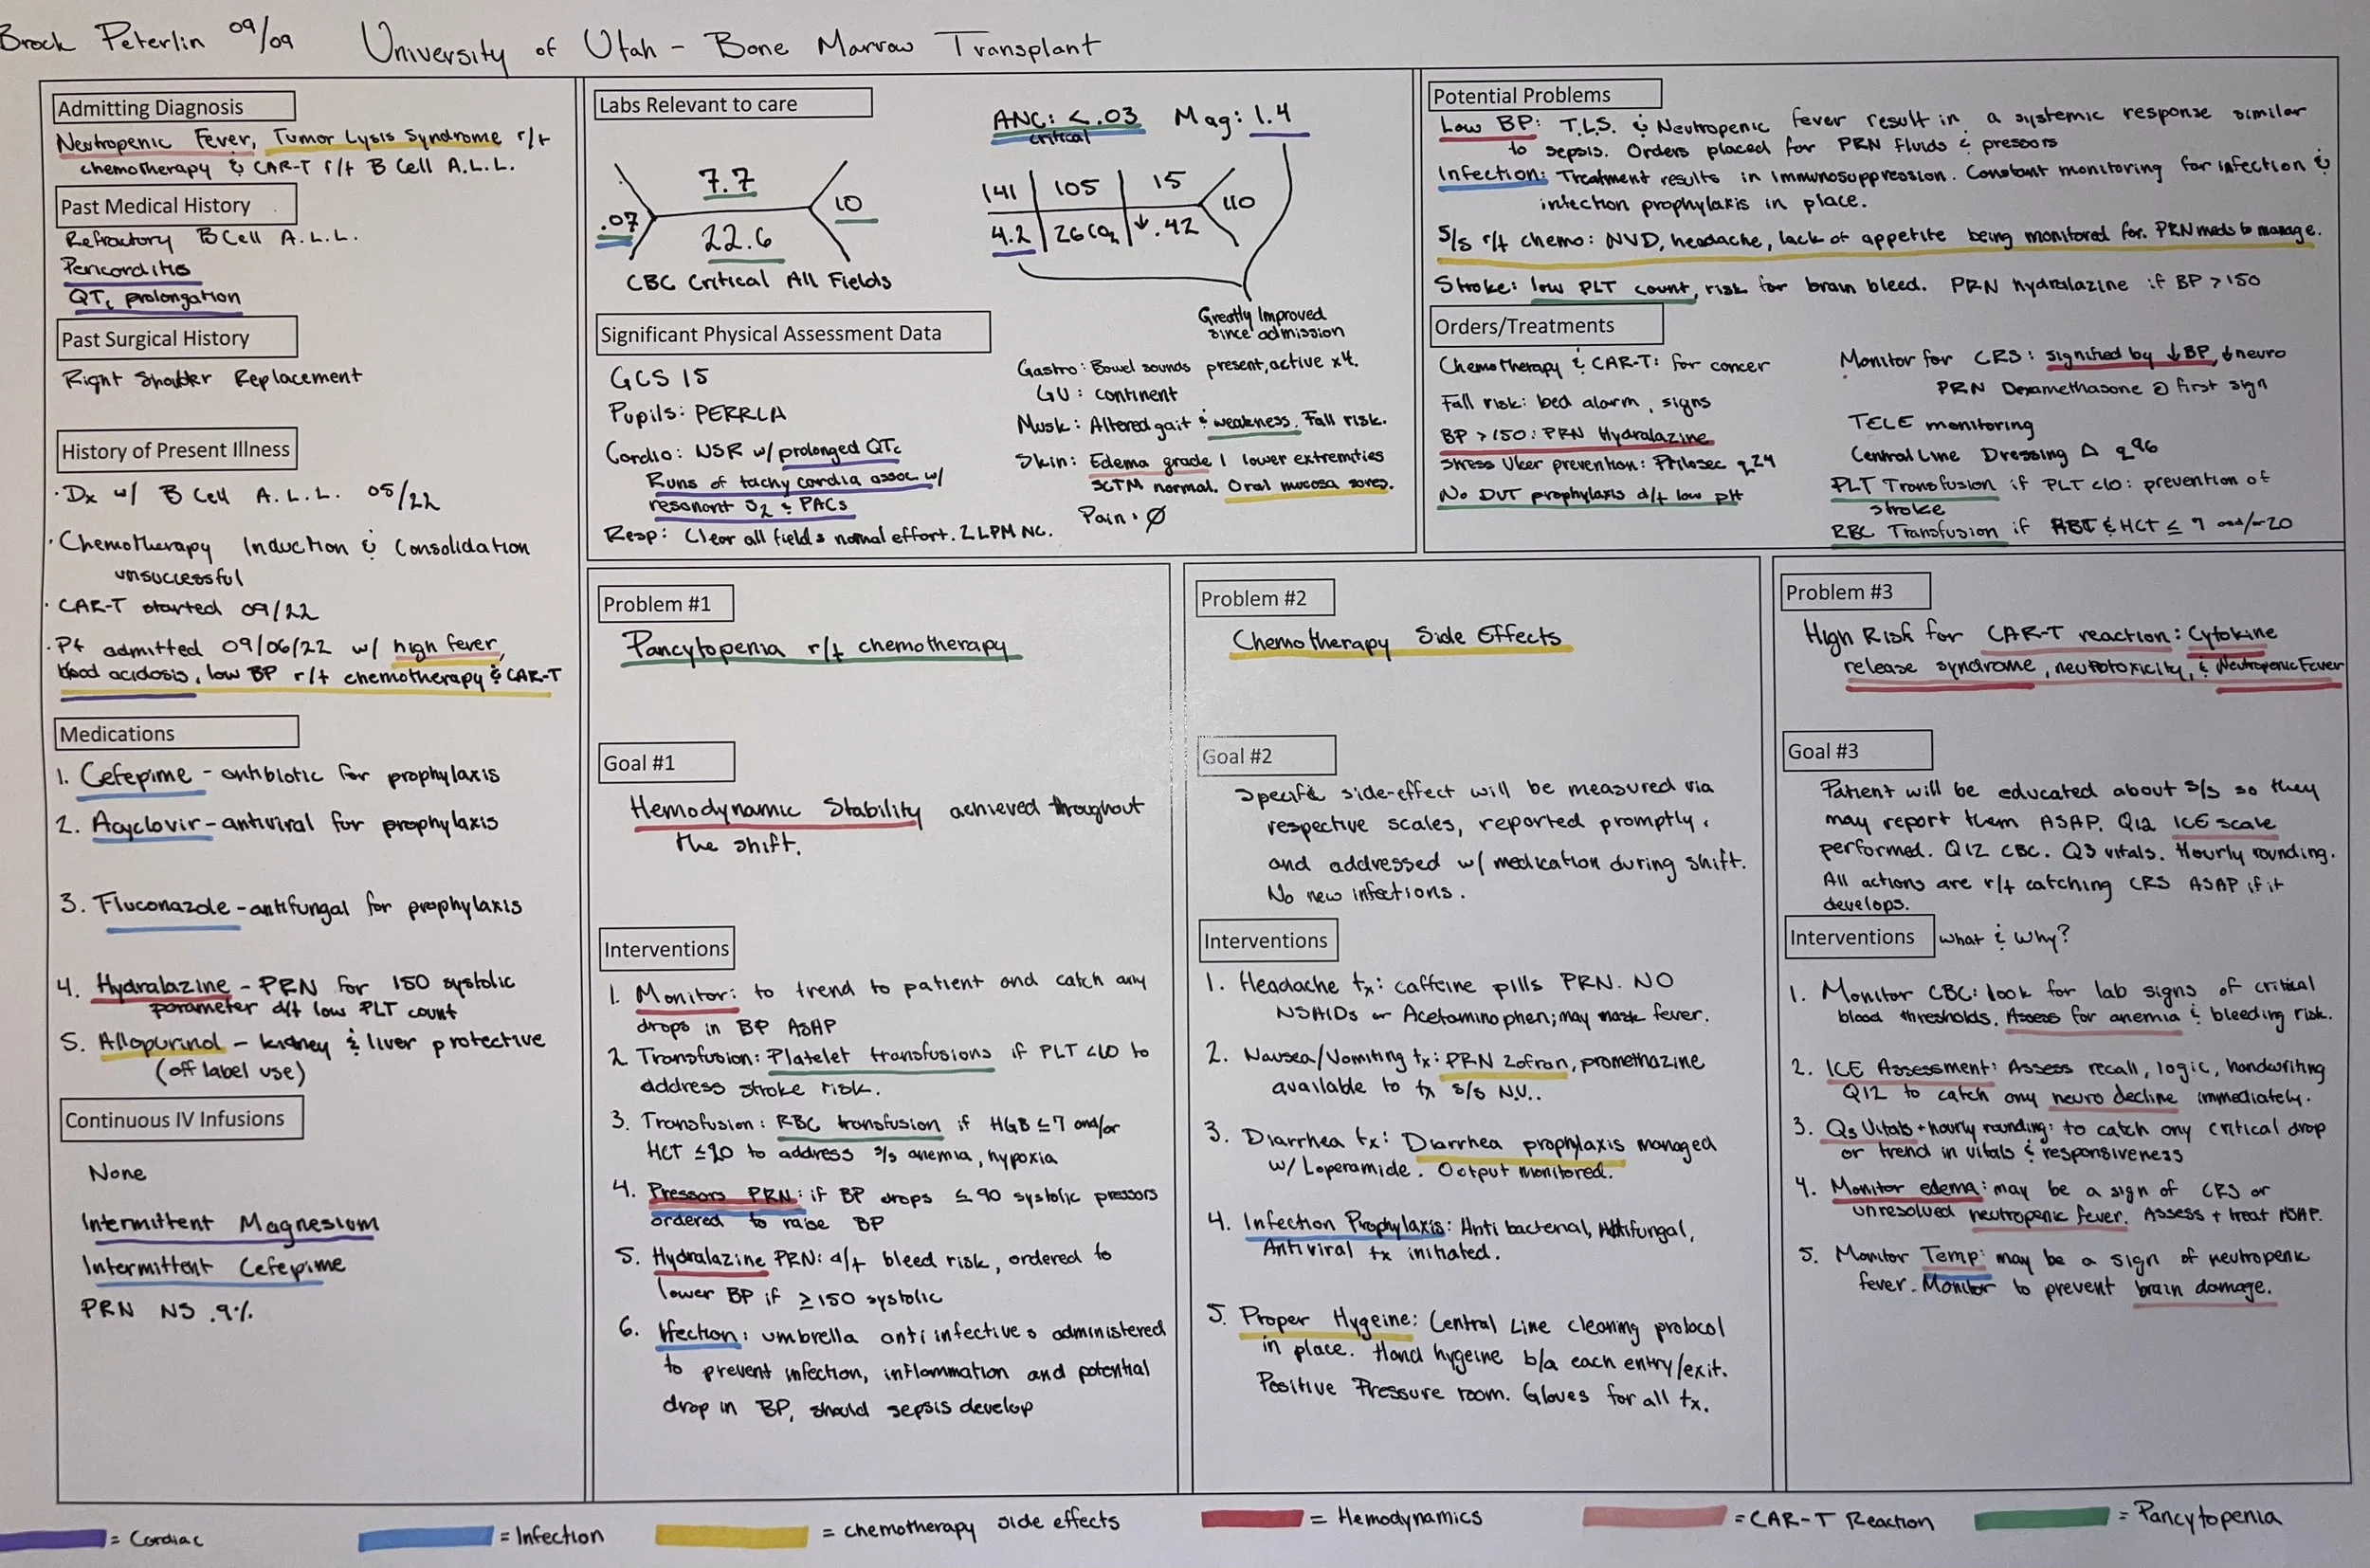 Brock Peterlin 09/09 University of Utah - Bone Marrow Transplant
Admitting Diagnosis
Neutropenic Fever, Tumor Lysis Syndrome r/t
chemotherapy & CAR-T r/t B Cell A.L.L.
Past Medical History
Refractory B Cell A.L.L.
Pericarditis
QTc prolongation
Past Surgical History
Right Shoulder Replacement
History of Present Illness
· Dx w/ B Cell A.L.L. 05/22
· Chemotherapy Induction & Consolidation
unsuccessful
· CAR-T started 09/22
· Pt admitted 09/06/22 w/ high fever,
blood acidosis, low BP r/t chemotherapy & CAR-T
Medications
1. Cefepime - antibiotic for prophylaxis
2. Acyclovir - antiviral for prophylaxis
3. Fluconazole - antifungal for prophylaxis
4. Hydralazine - PRN for 150 systolic
parameter d/t low PLT count
5. Allopurinol - kidney & liver protective
(off label use)
Continuous IV Infusions
None
Intermittent Magnesium
Intermittent Cefepime
PRN NS .9%
Labs Relevant to care
ANC: <.03 Mag: 1.4
critical
7.7
.07 10
22.6
CBC Critical All Fields
141 105 15
110
4.2 26 CO2 ↓.42
Greatly Improved
since admission
Significant Physical Assessment Data
GCS 15
Pupils: PERRLA
Cardio: NSR w/ prolonged QTc
Runs of tachycardia assoc. w/
resonant S2 & PACs
Resp: Clear all fields normal effort. 2 LPM NC.
Gastro: Bowel sounds present, active x4.
GU: continent
Musk: Altered gait & weakness. Fall risk.
Skin: Edema grade 1 lower extremities
SCTM normal. Oral mucosa sores.
Pain: Ø
Potential Problems
Low BP: T.L.S. & Neutropenic fever result in a systemic response similar
to sepsis. Orders placed for PRN fluids & pressors
Infection: Treatment results in immunosuppression. Constant monitoring for infection &
infection prophylaxis in place.
S/S r/t chemo: NVD, headache, lack of appetite being monitored for. PRN meds to manage.
Stroke: low PLT count, risk for brain bleed. PRN hydralazine if BP >150
Orders/Treatments
Chemotherapy & CAR-T: for cancer
Fall risk: bed alarm, signs
BP >150: PRN Hydralazine
Stress Ulcer prevention: Prilosec q24
No DVT prophylaxis d/t low pH
Monitor for CRS: signified by ↓BP, ↓neuro
PRN Dexamethasone @ first sign
TELE monitoring
Central Line Dressing Δ q96
PLT Transfusion if PLT <10: prevention of
stroke
RBC Transfusion if & HCT ≤ 7 and/or 20
Problem #1
Pancytopenia r/t chemotherapy
Goal #1
Hemodynamic Stability achieved throughout
the shift.
Interventions
1. Monitor: to trend to patient and catch any
drops in BP ASAP
2. Transfusion: Platelet transfusions if PLT <10 to
address stroke risk.
3. Transfusion: RBC transfusion if HGB ≤7 and/or
HCT ≤20 to address s/s anemia, hypoxia
4. Pressors PRN: if BP drops ≤ 90 systolic pressors
ordered to raise BP
5. Hydralazine PRN: d/t bleed risk, ordered to
lower BP if ≥150 systolic
6. Ifection: umbrella anti infectives administered
to prevent infection, inflammation and potential
drop in BP, should sepsis develop
Problem #2
Chemotherapy Side Effects
Goal #2
Specific side-effect will be measured via
respective scales, reported promptly,
and addressed w/ medication during shift.
No new infections.
Interventions
1. Headache tx: caffeine pills PRN. NO
NSAIDs or Acetaminophen; may mask fever.
2. Nausea/Vomiting tx: PRN Zofran, promethazine
available to tx s/s N.V..
3. Diarrhea tx: Diarrhea prophylaxis managed
w/ Loperamide. Output monitored.
4. Infection Prophylaxis: Anti bacterial, Antifungal,
Antiviral tx initiated.
5. Proper Hygeine: Central Line cleaning protocol
in place. Hand hygeine b/a each entry/exit.
Positive Pressure room. Gloves for all tx.
Problem #3
High Risk for CAR-T reaction: Cytokine
release syndrome, neurotoxicity, & Neutropenic Fever
Goal #3
Patient will be educated about s/s so they
may report them ASAP. Q12 ICE scale
performed. Q12 CBC. Q3 vitals. Hourly rounding.
All actions are r/t catching CRS ASAP if it
develops.
Interventions What & Why?
1. Monitor CBC: look for lab signs of critical
blood thresholds. Assess for anemia & bleeding risk.
2. ICE Assessment: Assess recall, logic, handwriting
Q12 to catch any neuro decline immediately.
3. Q3 Vitals + hourly rounding: to catch any critical drop
or trend in vitals & responsiveness
4. Monitor edema: may be a sign of CRS or
unresolved neutropenic fever. Assess + treat ASAP.
5. Monitor Temp: may be a sign of neutropenic
fever. Monitor to prevent brain damage.
= Cardiac = Infection = chemotherapy side effects = Hemodynamics = CAR-T Reaction = Pancytopenia